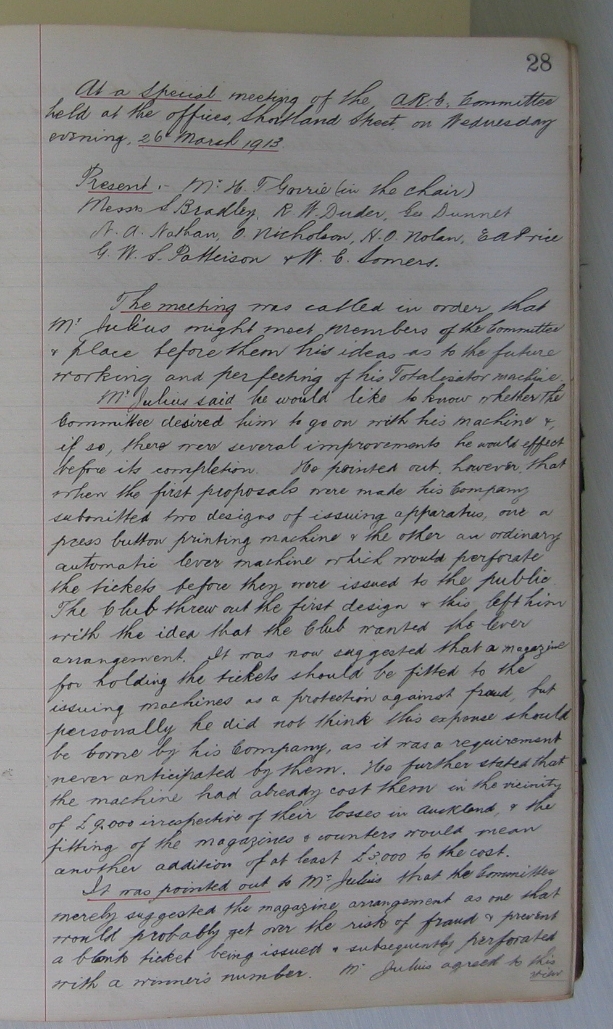 28
At a Special meeting of the A.R.C. Committee
held at the offices, Shortland Street, on Wednesday
evening, 26th March 1913
Present :- Mr H. T Gorrie (in the chair)
Messrs S Bradley, R W. Duder, Geo Dunnet
N. A. Nathan, O. Nicholson, H. O. Nolan, E A Price
G. W. S. Patterson & W. C. Somers.
The meeting was called in order that
Mr Julius might meet Members of the Committee
& place before them his ideas as to the future
working and perfecting of his Totalisator machine.
Mr Julius said he would like to know whether the
Committee desired him to go on with his machine &,
if so, there were several improvements he would effect
before its completion. He pointed out, however, that
when the first proposals were made his Company
submitted two designs of issuing apparatus, one a
press button printing machine & the other an ordinary
automatic lever machine which would perforate
the tickets before they were issued to the public
The Club threw out the first design & this, left him
with the idea that the Club wanted the lever
arrangement. It was now suggested that a magazine
for holding the tickets should be fitted to the
issuing machines as a protection against fraud, but
personally he did not think this expense should
be borne by his Company, as it was a requirement
never anticipated by them. He further stated that
the machine had already cost them in the vicinity
of £9,000 irrespective of their losses in Auckland, & the
fitting of the magazines & counters would mean
another addition of at least £3,000 to the cost.
It was pointed out to Mr Julius that the Committee
merely suggested the magazine arrangement as one that
would probably get over the risk of fraud & prevent
a blank ticket being issued & subsequently perforated
with a winner's number. Mr Julius agreed to this
view